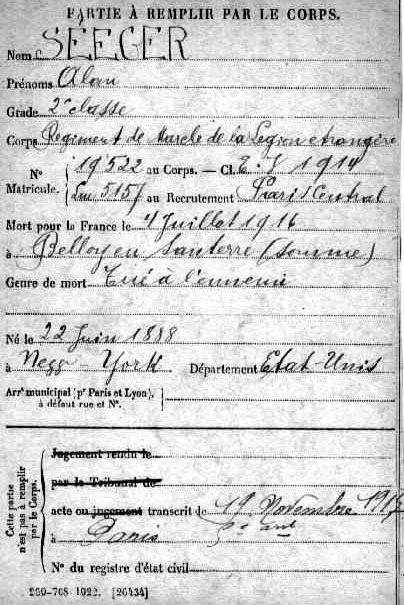 PARTIE À REMPLIR PAR LE CORPS.
Nom SEEGER
Prénoms Alan
Grade 2e classe
Corps Régiment de Marche de la Légion étrangère
N° Matricule. 19522 au Corps. — Cl. E. V 1914
5157 au Recrutement Paris Central
Mort pour la France le 4 Juillet 1916
à Belloy en Santerre (Somme)
Genre de mort Tué à l'ennemi
Né le 22 Juin 1888
à New-York Département Etat-Unis
Arrt municipal (pr Paris et Lyon), à défaut rue et N°.
Cette partie n'est pas à remplir par le Corps.
Jugement rendu le
par le Tribunal de
acte ou jugement transcrit le 19 Novembre
à Paris
N° du registre d'état civil
[26434]